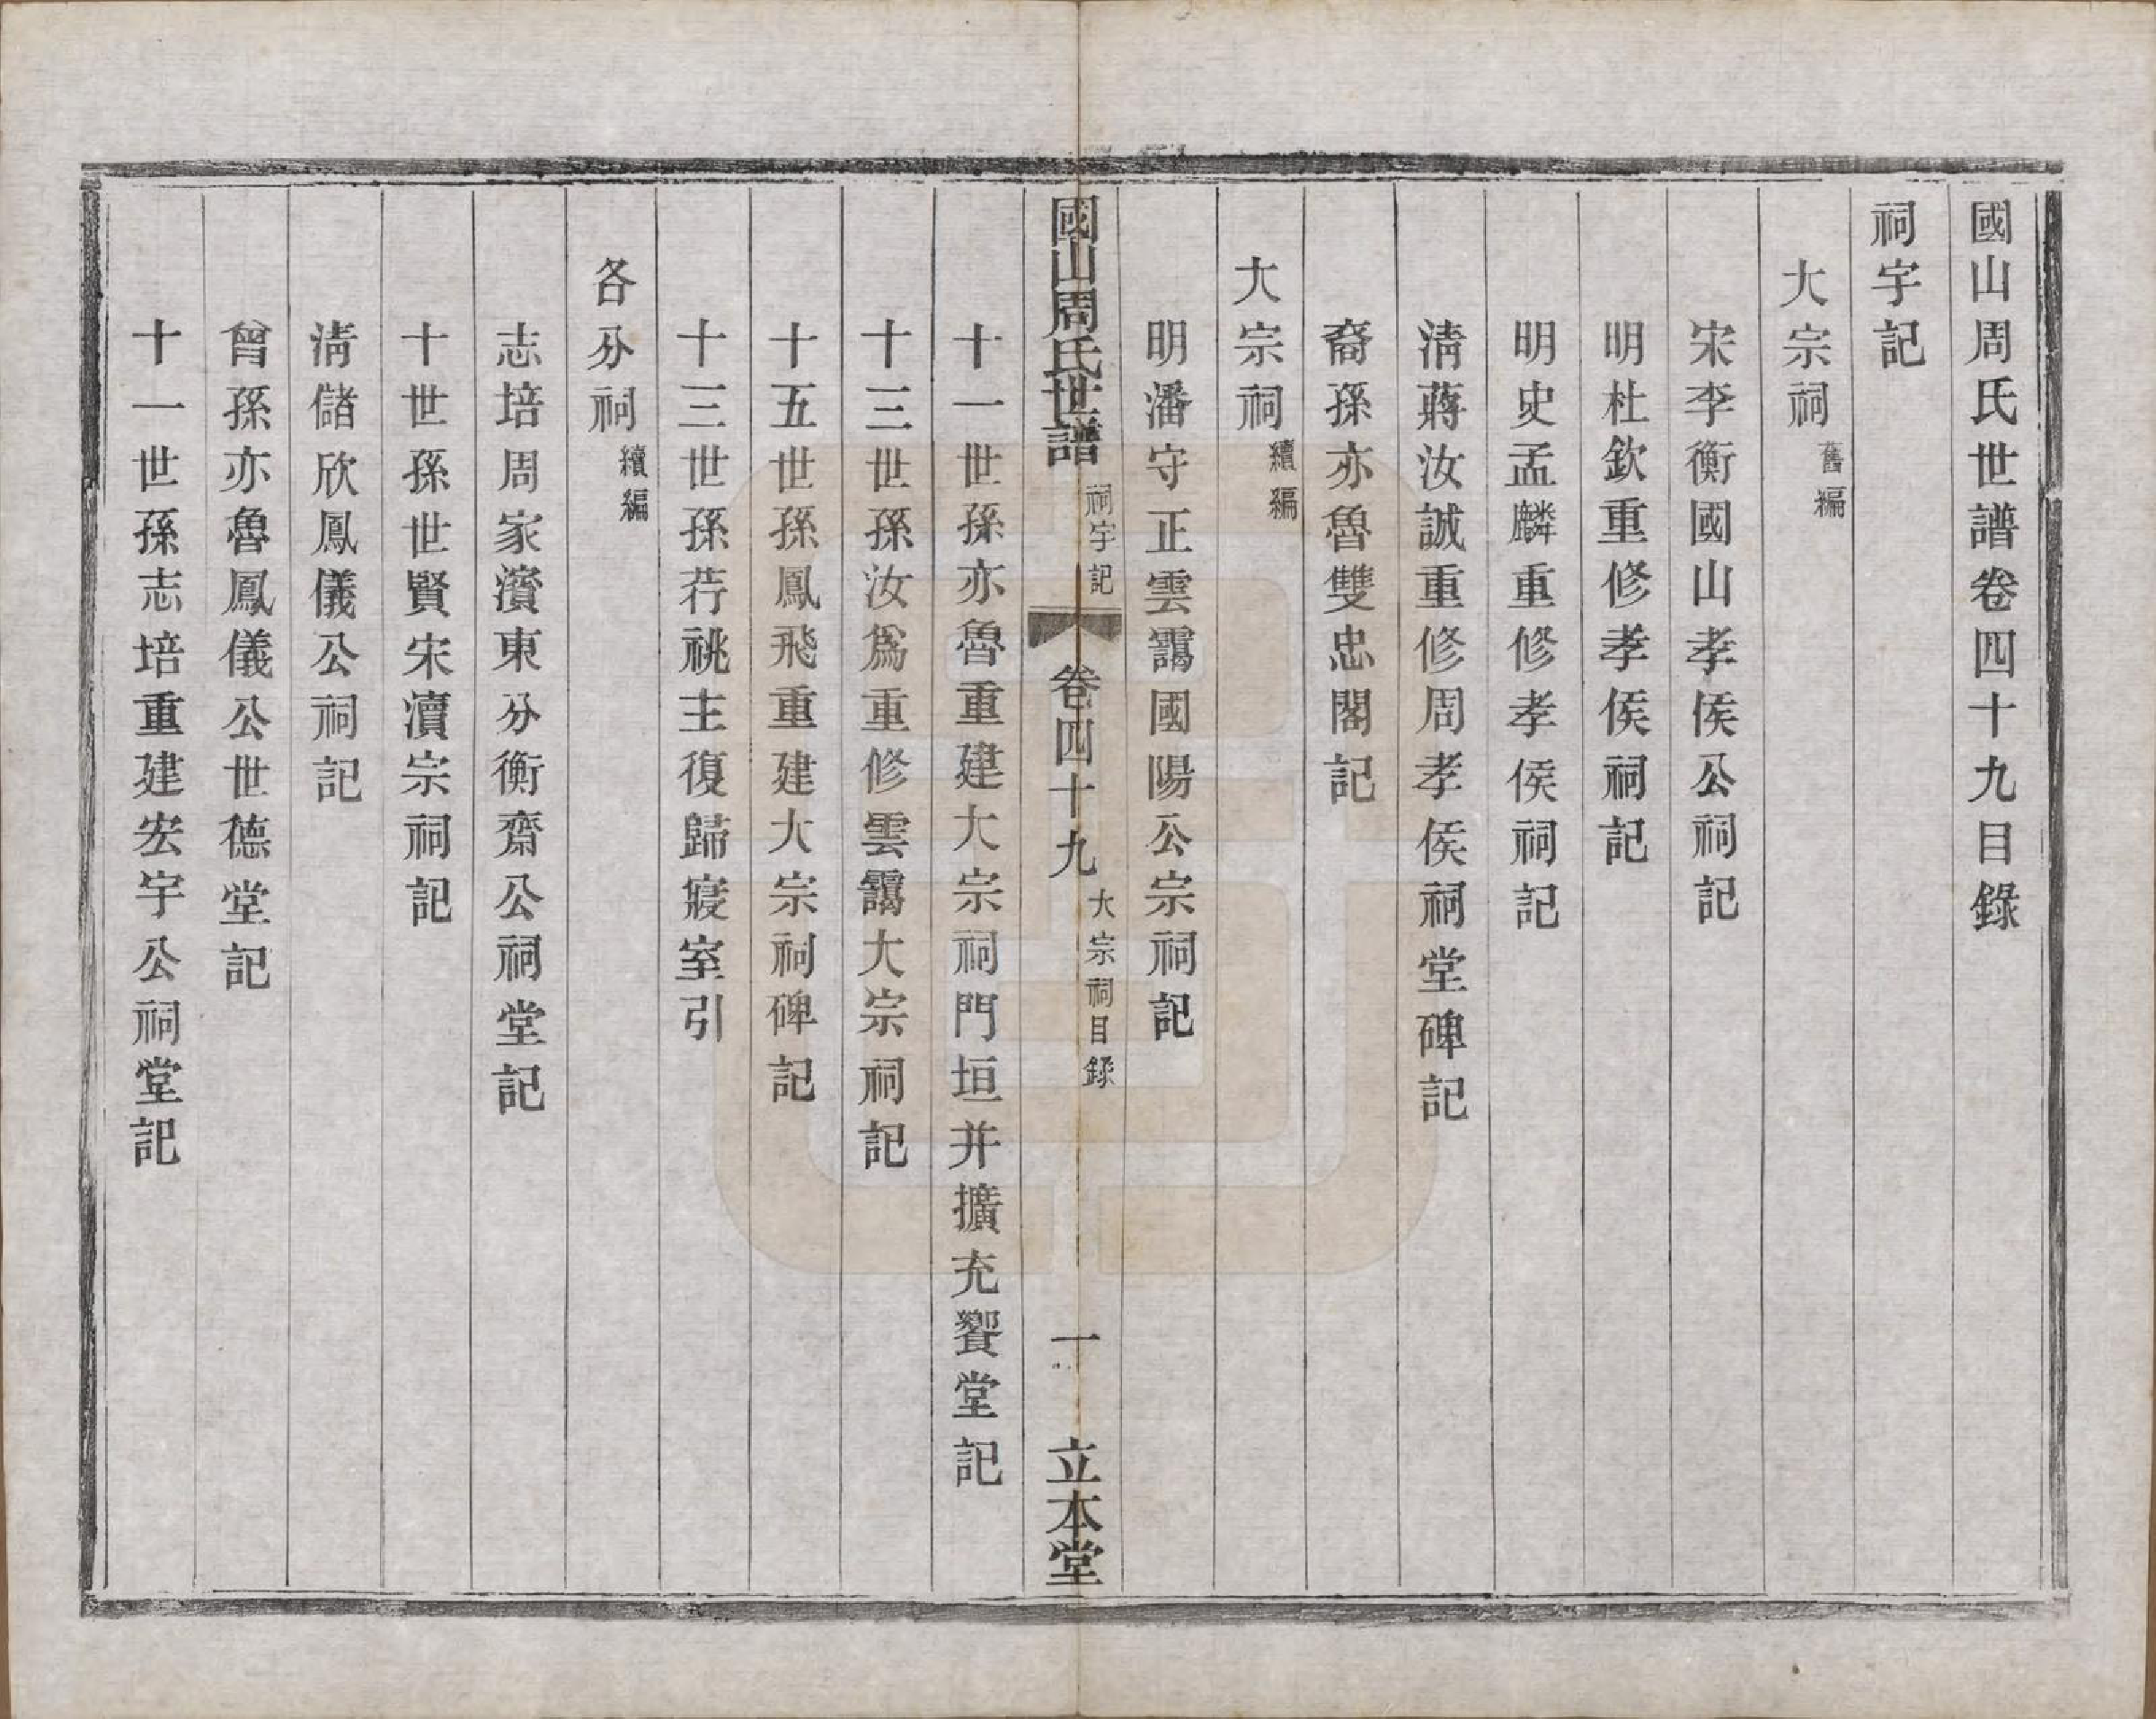 國山周氏世譜卷四十九目錄
祠宇記
大宗祠 舊編
宋李衡國山孝侯公祠記
明杜欽重修孝侯祠記
明史孟麟重修孝侯祠記
淸蔣汝誠重修周孝侯祠堂碑記
裔孫亦魯雙忠閣記
大宗祠 續編
明潘守正雲靄國陽公宗祠記
國山周氏世譜 祠宇記 卷四十九 大宗祠目錄 一 立本堂
十一世孫亦魯重建大宗祠門垣并擴充饗堂記
十三世孫汝爲重修雲靄大宗祠記
十五世孫鳳飛重建大宗祠碑記
十三世孫荇祧主復歸寢室引
各分祠 續編
志培周家濱東分衡齋公祠堂記
十世孫世賢宋瀆宗祠記
淸儲欣鳳儀公祠記
曾孫亦魯鳳儀公世德堂記
十一世孫志培重建宏宇公祠堂記